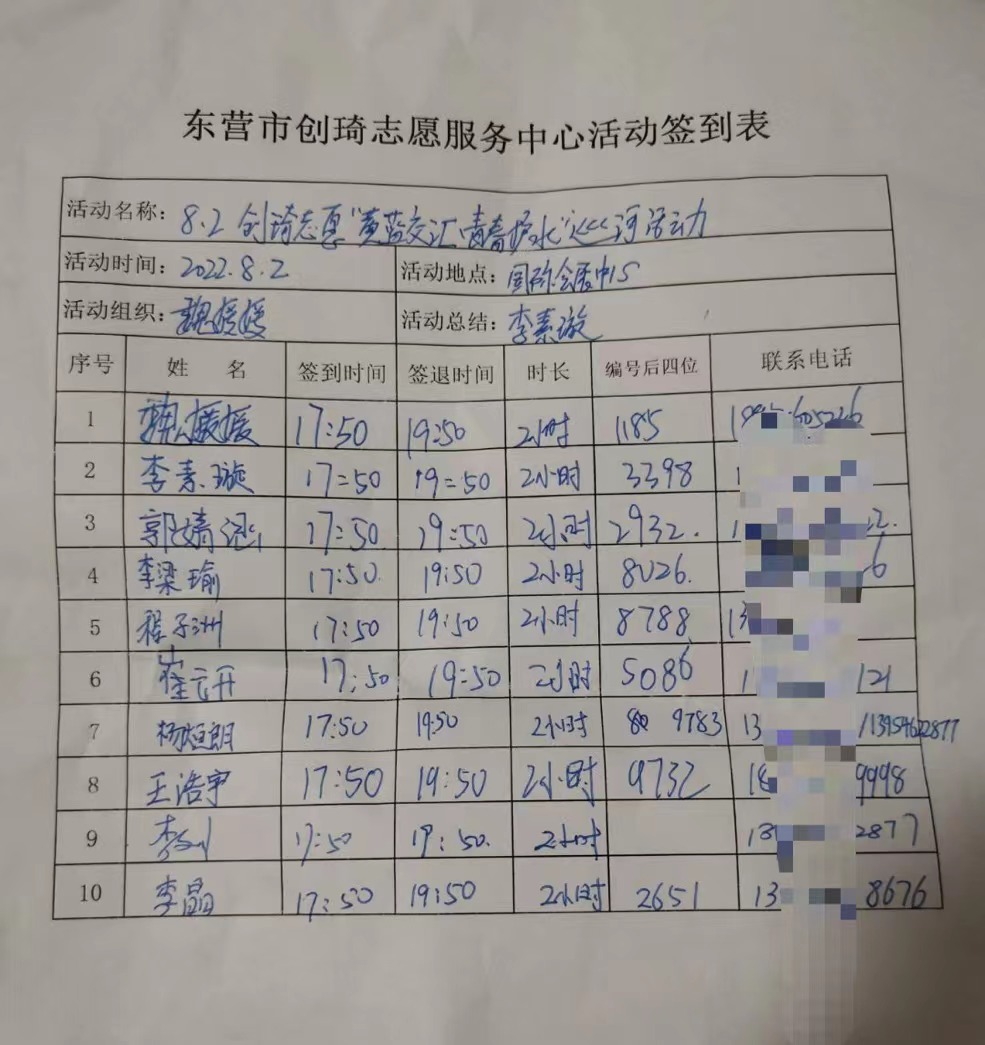 东营市创琦志愿服务中心活动签到表
活动名称: 8.2 创琦志愿"黄蓝交汇·青春护水"巡河活动
活动时间: 2022.8.2 活动地点: 国际会展中心
活动组织: 魏媛媛 活动总结: 李素璇
序号 姓 名 签到时间 签退时间 时长 编号后四位 联系电话
1 魏媛媛 17:50 19:50 2小时 1185
2 李素璇 17:50 19:50 2小时 3398
3 郭婧 17:50 19:50 2小时 2932.
4 李梁瑜 17:50. 19:50 2小时 8026. 6
5 程子洲 17:50 19:50 2小时 8788 13
6 崔云开 17:50 19:50 2小时 5086 1 121
7 杨烜朗 17:50 19:50 2小时 9783 13 /13954622877
8 王浩宇 17:50 19:50 2小时 9732 18 9998
9 17:50 19:50. 2小时 2877
10 李晶 17:50 19:50 2小时 2651 13 8676